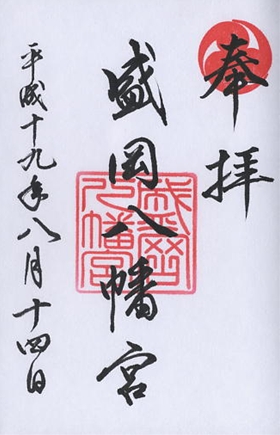 奉拝
盛岡八幡宮
平成十九年八月十四日
盛岡八幡宮